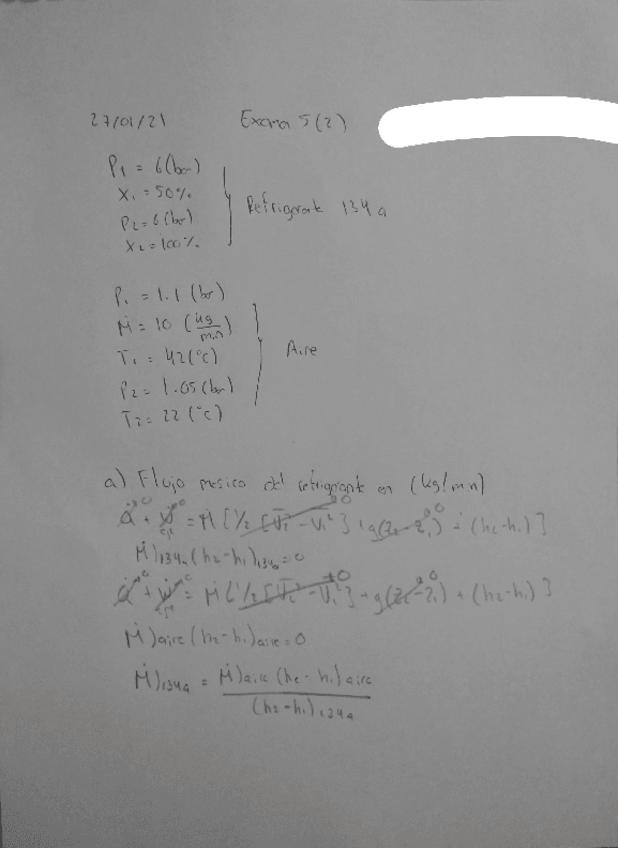 27/01/21 Examen 5(2)
P₁ = 6(bar)
X₁ = 50%
P₂ = 6(bar)
X₂ = 100%
Refrigerante 134a
P₁ = 1.1 (bar)
Ṁ = 10 (kg/min)
T₁ = 42(°C)
P₂ = 1.05(bar)
T₂ = 22 (°C)
Aire
a) Flujo masico del refrigerante en (kg/min)
Q̇ + Ẇ = Ṁ [½ [V₂² - V₁²] + g(Z₂-Z₁) + (h₂-h₁)]
Ṁ)134a (h₂-h₁)134a = 0
Q̇ + Ẇ = Ṁ [½ [V₂² - V₁²] + g(Z₂-Z₁) + (h₂-h₁)]
Ṁ)aire (h₂-h₁)aire = 0
Ṁ)134a = Ṁ)aire (h₂-h₁)aire
(h₂-h₁)134a